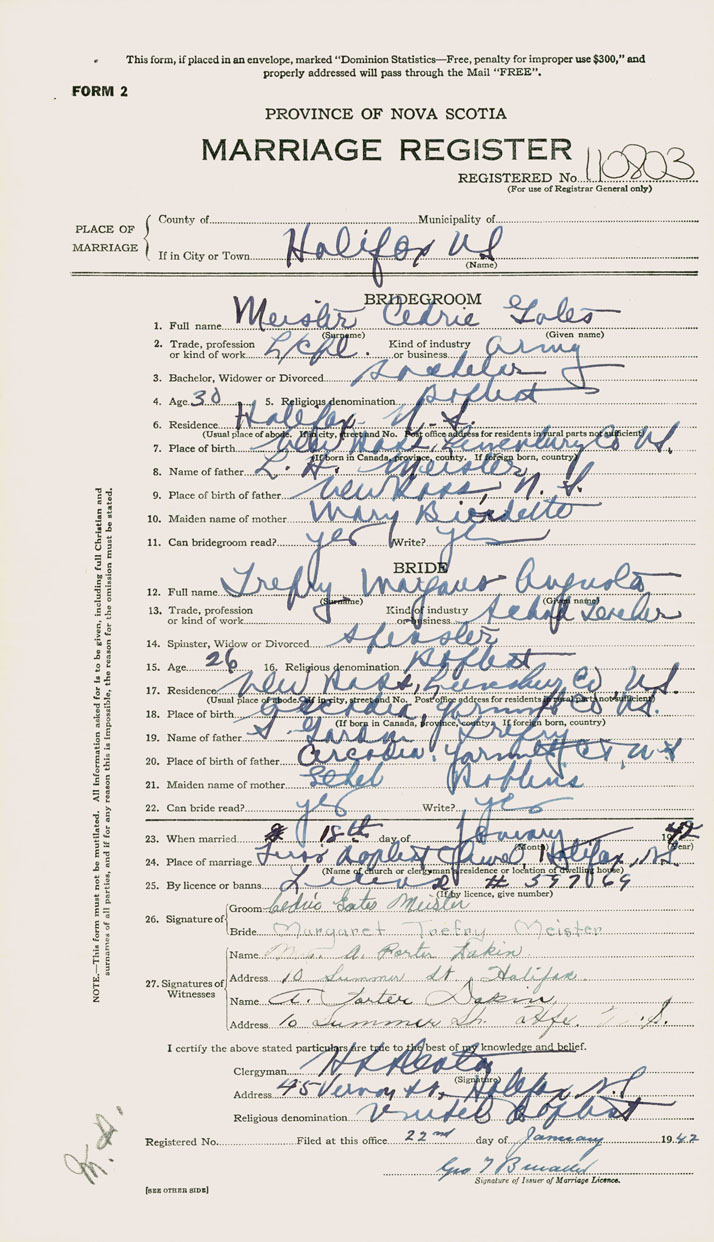 This form, if placed in an envelope, marked "Dominion Statistics—Free, penalty for improper use $300," and
properly addressed will pass through the Mail "FREE".
FORM 2
PROVINCE OF NOVA SCOTIA
MARRIAGE REGISTER
REGISTERED No. 110803
(For use of Registrar General only)
PLACE OF MARRIAGE
County of Municipality of
If in City or Town Halifax NS
(Name)
BRIDEGROOM
1. Full name Meister Cedric
(Surname) (Given name)
2. Trade, profession or kind of work L/Cpl. Kind of industry or business Army
3. Bachelor, Widower or Divorced Bachelor
4. Age 30 5. Religious denomination Baptist
6. Residence Halifax N.S.
(Usual place of abode. If in city, street and No. Post office address for residents in rural parts not sufficient)
7. Place of birth New Ross, Lunenburg Co N.S.
(If born in Canada, province, county. If foreign born, country)
8. Name of father L. H. Meister
9. Place of birth of father New Ross, N.S.
10. Maiden name of mother Mary
11. Can bridegroom read? yes Write? yes
BRIDE
12. Full name Trefry Augusta
(Surname) (Given name)
13. Trade, profession or kind of work Kind of industry or business School Teacher
14. Spinster, Widow or Divorced Spinster
15. Age 26 16. Religious denomination Baptist
17. Residence New Ross, Lunenburg Co N.S.
(Usual place of abode. If in city, street and No. Post office address for residents in rural parts not sufficient)
18. Place of birth Co. N.S.
(If born in Canada, province, county. If foreign born, country)
19. Name of father Trefry
20. Place of birth of father Arcadia, N.S
21. Maiden name of mother Ethel Robbins
22. Can bride read? yes Write? yes
23. When married 18th day of January 1942
(Month) (Year)
24. Place of marriage First Baptist Church Halifax, N.S.
(Name of church or clergyman's residence or location of dwelling house)
25. By licence or banns Licence # 397169
(If by licence, give number)
26. Signature of
Groom Cedric Gates Meister
Bride Margaret Trefry Meister
27. Signatures of Witnesses
Name Mrs. A. Porter Dakin
Address 10 Summer St, Halifax
Name A. Porter Dakin
Address 10 Summer St. Hfx. N.S.
I certify the above stated particulars are true to the best of my knowledge and belief.
Clergyman
(Signature)
Address 45 Vernon St, Halifax, N.S
Religious denomination United Baptist
Registered No. Filed at this office 22nd day of January 1942
Geo T
Signature of Issuer of Marriage Licence.
[SEE OTHER SIDE]
NOTE.—This form must not be mutilated. All information asked for is to be given, including full Christian and
surnames of all parties, and if for any reason this is impossible, the reason for the omission must be stated.